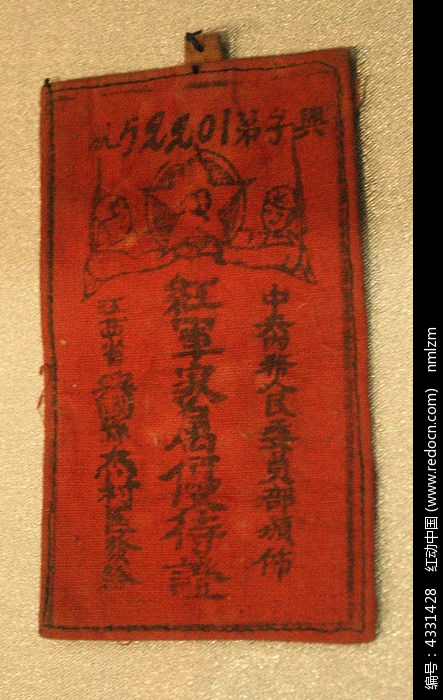 興字第52201號
中央內務人民委員部頒佈
紅軍家屬優待證
江西省興國縣杰村區發給
编号：4331428 红动中国 (www.redocn.com) nmlzm